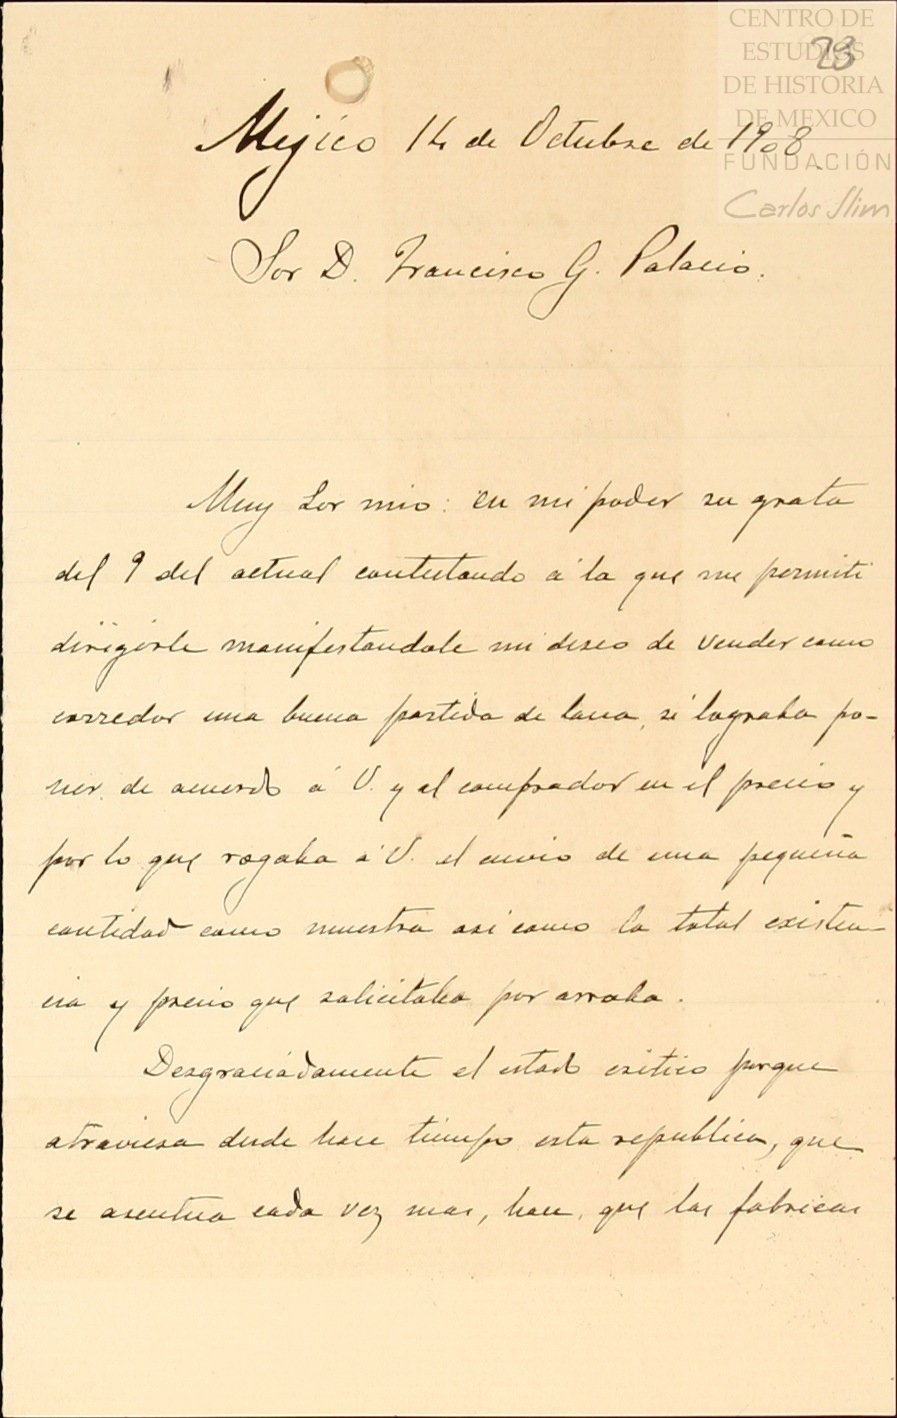 CENTRO DE
ESTUDIOS
DE HISTORIA
DE MEXICO
FUNDACIÓN
Carlos Slim
23
Mejico 14 de Octubre de 1908
Sor D. Francisco G. Palacio.
Muy Sor mio: en mi poder su grata
del 9 del actual contestando á la que me permiti
dirigirle manifestandole mi deseo de vender como
corredor una buena partida de lana, si lograba po-
ner de acuerdo á V. y al comprador en el precio y
por lo que rogaba á V. el envio de una pequeña
cantidad como muestra asi como la total existen-
cia y precio que solicitaba por arroba.
Desgraciadamente el estado critico porque
atraviesa desde hace tiempo esta republica, que
se asentua cada vez mas, hace que las fabricas